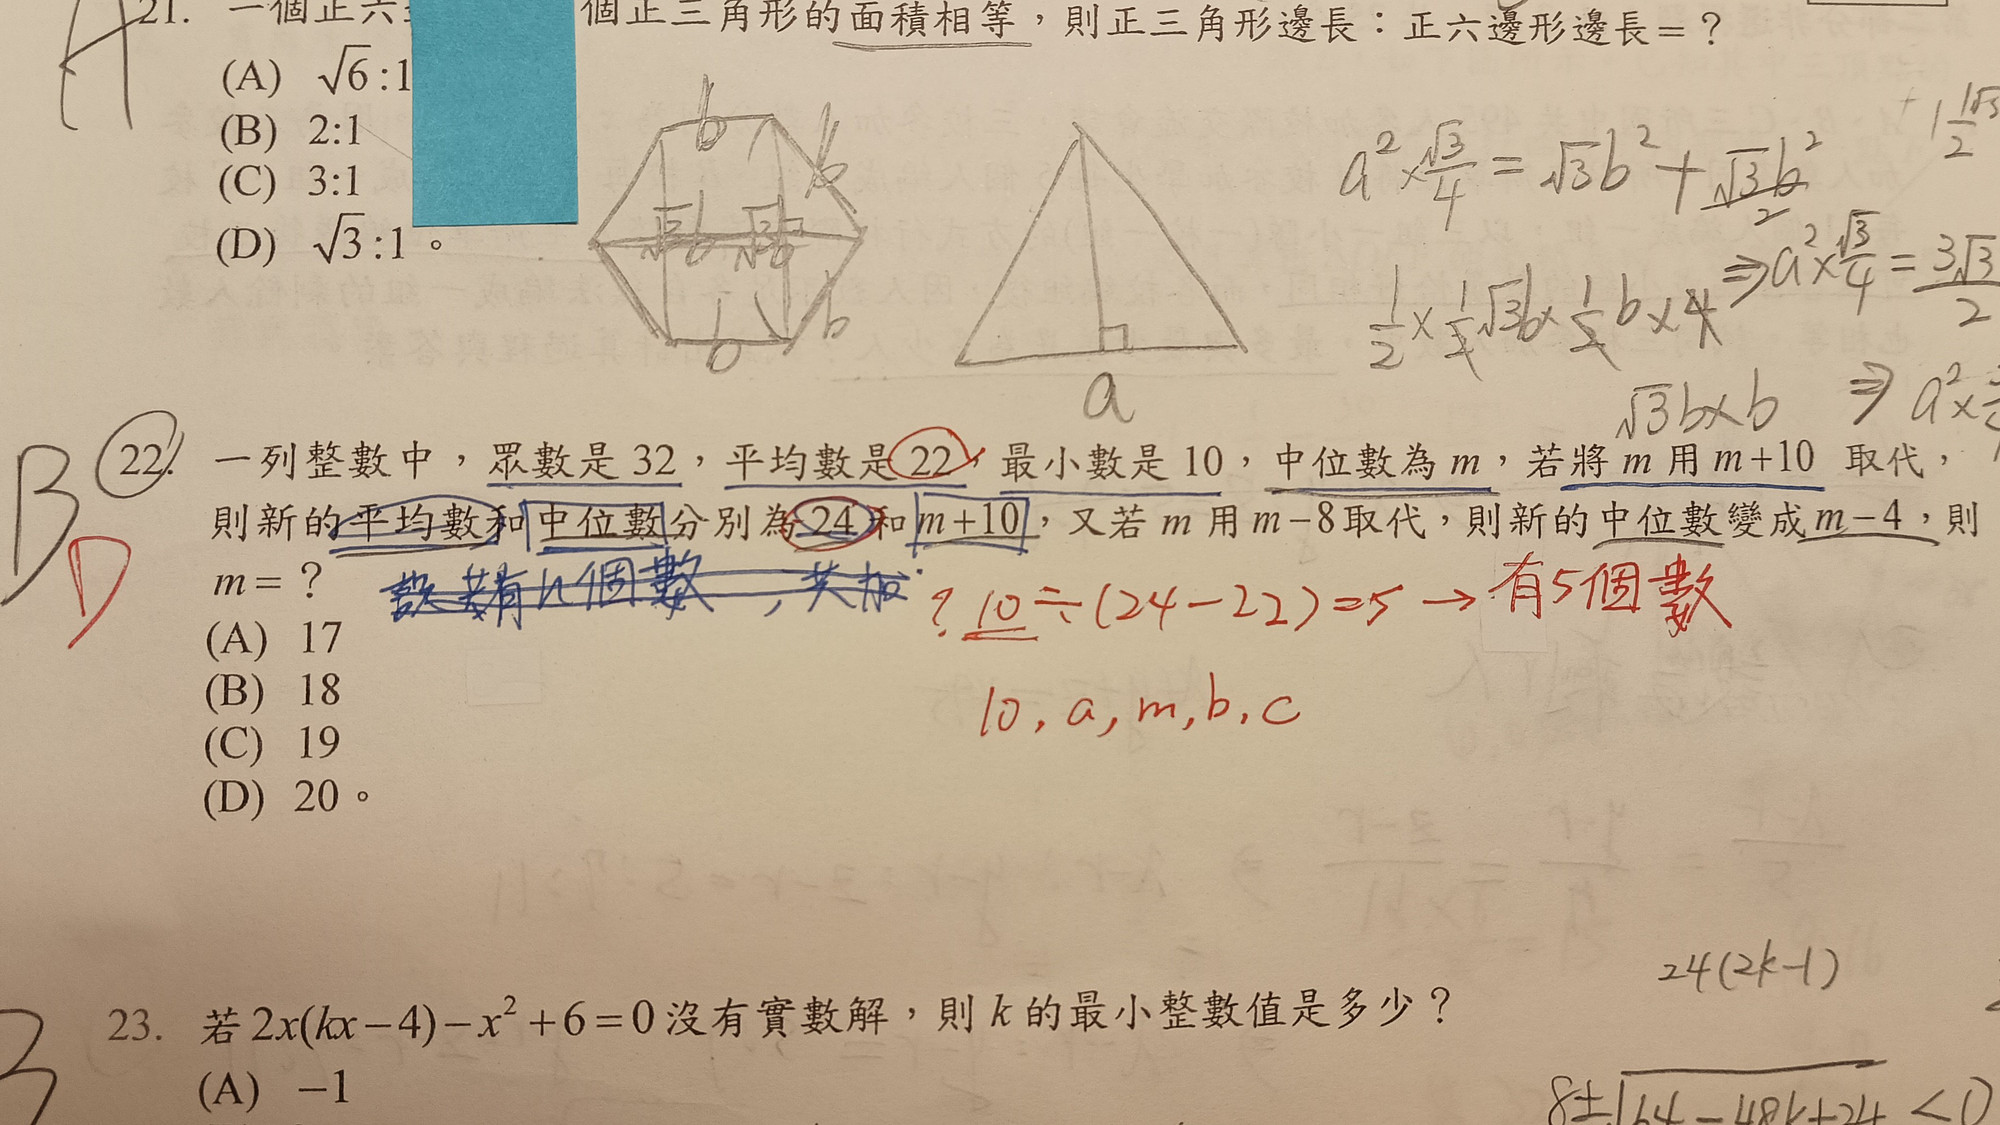 21. 一個正六 個正三角形的面積相等，則正三角形邊長：正六邊形邊長=？
A
(A) √6:1
(B) 2:1
(C) 3:1
(D) √3:1。
b
b
√3b √3b
b
b
a
a²×√3/4=√3b²+√3b²/2
1/2×1/2√3b×1/2b×4
⇒a²×√3/4=3√3/2
√3b×b
⇒a²×
B D
22. 一列整數中，眾數是 32，平均數是 22，最小數是 10，中位數為 m，若將 m 用 m+10 取代，
則新的平均數和中位數分別為 24 和 m+10，又若 m 用 m−8取代，則新的中位數變成 m−4，則
m=？
?10÷(24-22)=5→有5個數
(A) 17
(B) 18
(C) 19
(D) 20。
10, a, m, b, c
24(2k-1)
23. 若 2x(kx−4)−x²+6=0 沒有實數解，則 k 的最小整數值是多少？
(A) −1
8±√64-48k+24 <0